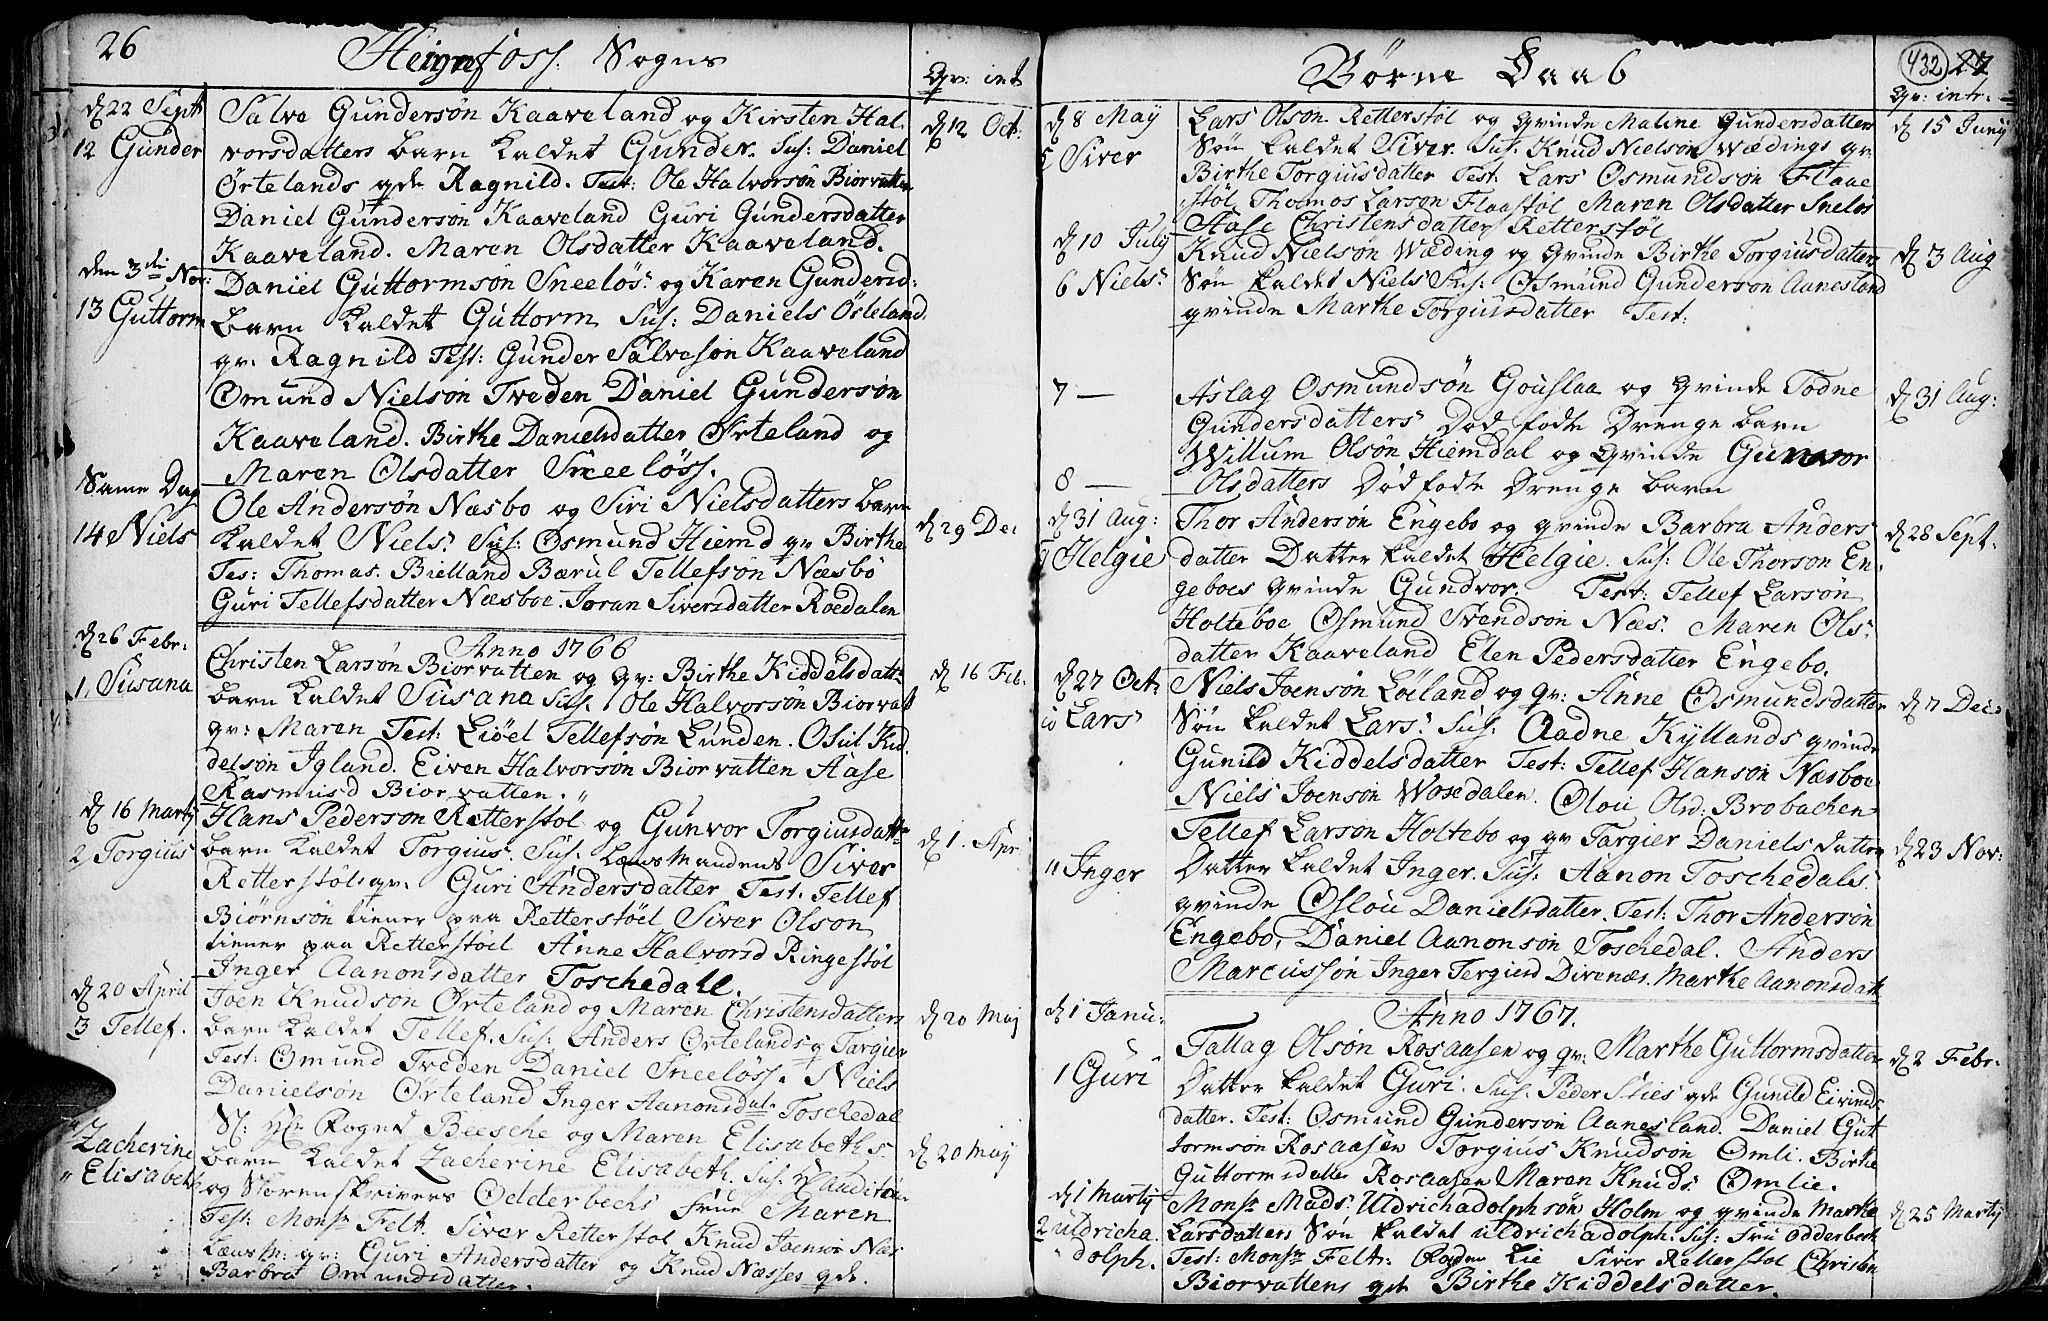 26
Heignefoss. Sogns
Qv: int
d 22 Sept
12 Gunder
Salve Gundersön Kaaveland og Kirsten Hal
vorsdatters barn kaldet Gunder. Sus: Daniel
Örtelands qde Ragnild. Test: Ole Halvorsön Biorvatten
Daniel Gundersön Kaaveland Guri Gundersdatter
Kaaveland. Maren Olsdatter Kaaveland.
d 12 Oct:
den 3die Nov:
13 Guttorm
Daniel Guttormsön Sneelös: og Karen Gundersd:
barn kaldet Guttorm Sus: Daniels Örteland
qv: Ragnild Test: Gunder Salvesön Kaaveland
Omund Nielsön Tveden Daniel Gundersön
Kaaveland. Birthe Danielsdatter Örteland og
Maren Olsdatter Sneelöss.
Same Dag
14 Niels
Ole Andersön Næsbo og Siri Nielsdatters barn
kaldet Niels. Sus: Osmund Hiemd qv Birthe
Tes: Thomas. Bielland Bærul Tellefson Næsbö
Guri Tellefsdatter Næsboe. Joran Siversdatter Roedalen
d 29 De:
Anno 1766
d 26 Febr:
1. Susana
Christen Larsön Biorvatten og qv: Birthe Kiddelsdatt:
barn kaldet Susana Sus: Ole Halvorsön Biorvat
qv: Maren Test: Liöel Tellefsön Lunden. Osul Kid
delsön Igland. Eiven Halvorsön Biorvatten Aase
Rasmusd Biorvatten.
d 16 Feb.
d 16 Marty
2, Torgius
Hans Pedersön Retterstöl og Gunvor Torgiusdatt:
barn kaldet Torgius. Sus: Lænsmandens Siver
Retterstöls qv: Guri Andersdatter Test: Tellef
Biörnsön tiener paa Retterstöel Siver Olson
tiener paa Retterstöel Anne Halvorsd Ringestöl
Inger Aanonsdatter Toschedall.
d 1. Apr
d 20 April
3 Tellef.
Joen Knudsön Örteland og Maren Christensdatters
barn kaldet Tellef. Sus: Anders Örtelands q Targier
Test: Omund Tveden Daniel Sneelöss. Niels
Danielsön Örteland Inger Aanonsdat: Toschedal
d 20 Maj
Zacherine
Elisabeth
S: Hr Fogut Beesche og Maren Elisabeths
barn kaldet Zacherine Elisabeth. Sus: Hr Auditeur
og Storenskrivers Odderbechs frue Maren
Test: Monsr Felt. Siver Retterstol Knud Joensön Næs
Lænsm: qv: Guri Andersdatter og Knud Næsses qde.
Barbra Omundsdatter.
d 20 May
Börne Daab
432 27
Qv: intr:
d 8 May
5 Siver
Lars Olson Retterstöl og qvinde Maline Gundersdatters
Sön kaldet Siver. Sus. Knud Nielsön Wædings qv
Birthe Torgiusdatter Test: Lars Osmundsön Flaae
stöl Thomas Larsön Flaastöl Maren Olsdatter Snelös
Aase Christensdatter Retterstöl
d 15 Juny
d 10 July
6 Niels:
Knud Nielsön Wæding og qvinde Birthe Torgiusdatters
Sön kaldet Niels Sus: Osmund Gunderson Aanesland
qvinde Marthe Torgiusdatter Test:
d 3 Aug
7 —
Aslag Osmundsön Gouslaa og qvinde Todne
Gundersdatters Död födte Drenge barn
d 31 Aug:
8 —
Willum Olsön Hiemdal og Qvinde Gunvor
Olsdatters Dödfödte Drenge barn
d 31 Aug:
9 Helgie
Thor Andersön Engebo og qvinde Barbra Anders
datter Datter kaldet Helgie. Sus: Ole Thorson En
geboes qvinde Gundvor. Test: Tellef Larsön
Holteboe Osmund Svendson Næs. Maren Ols
datter Kaaveland Elen Pedersdatter Engebo.
d 28 Sept.
d 27 Oct:
10 Lars
Niels Joensön Löiland og qv: Anne Osmundsdatter
Sön kaldet Lars. Sus: Aadne Kyllands qvinde
Gunild Kiddelsdatter Test: Tellef Hansön Næsboe
Niels Joensön Wosedalen. Olou Olsd: Brobachen
d 7 Dec:
11 Inger
Tellef Larsön Holtebo og qv Targier Daniels datter
Datter kaldet Inger. Sus: Aanon Toschedals
qvinde Oslou Danielsdatter. Test: Thor Andersön
Engebo, Daniel Aanonsön Toschedal. Anders
Marcussön Inger Tergiesd Divenæs. Marthe Aanonsdatt
d 23 Nov:
Anno 1767.
d 1 Janu:
1 Guri
Tallag Olsön Rosaasen og qv: Marthe Guttormsdatter
Datter kaldet Guri. Sus: Peder Sties qde Gunild Eivinds
datter. Test: Osmund Gundersön Aanesland. Daniel Gut
tormsön Rosaasen Torgius Knudsön Omli. Birthe
Guttormsdatter Rosaasen Maren Knuds: Omlie.
d 2 Febr:
d 1 Marty
2 uldricha
dolph.
Monsr Mads Uldrichadolphsön Holm og qvinde Marthe
Larsdatters Sön kaldet uldrichadolph. Sus: Frü Odderbech
Test: Monsr Felt: Ogden Lie Siver Retterstol Christen
Biorvattens qde Birthe Kiddelsdatter.
d 25 Marty